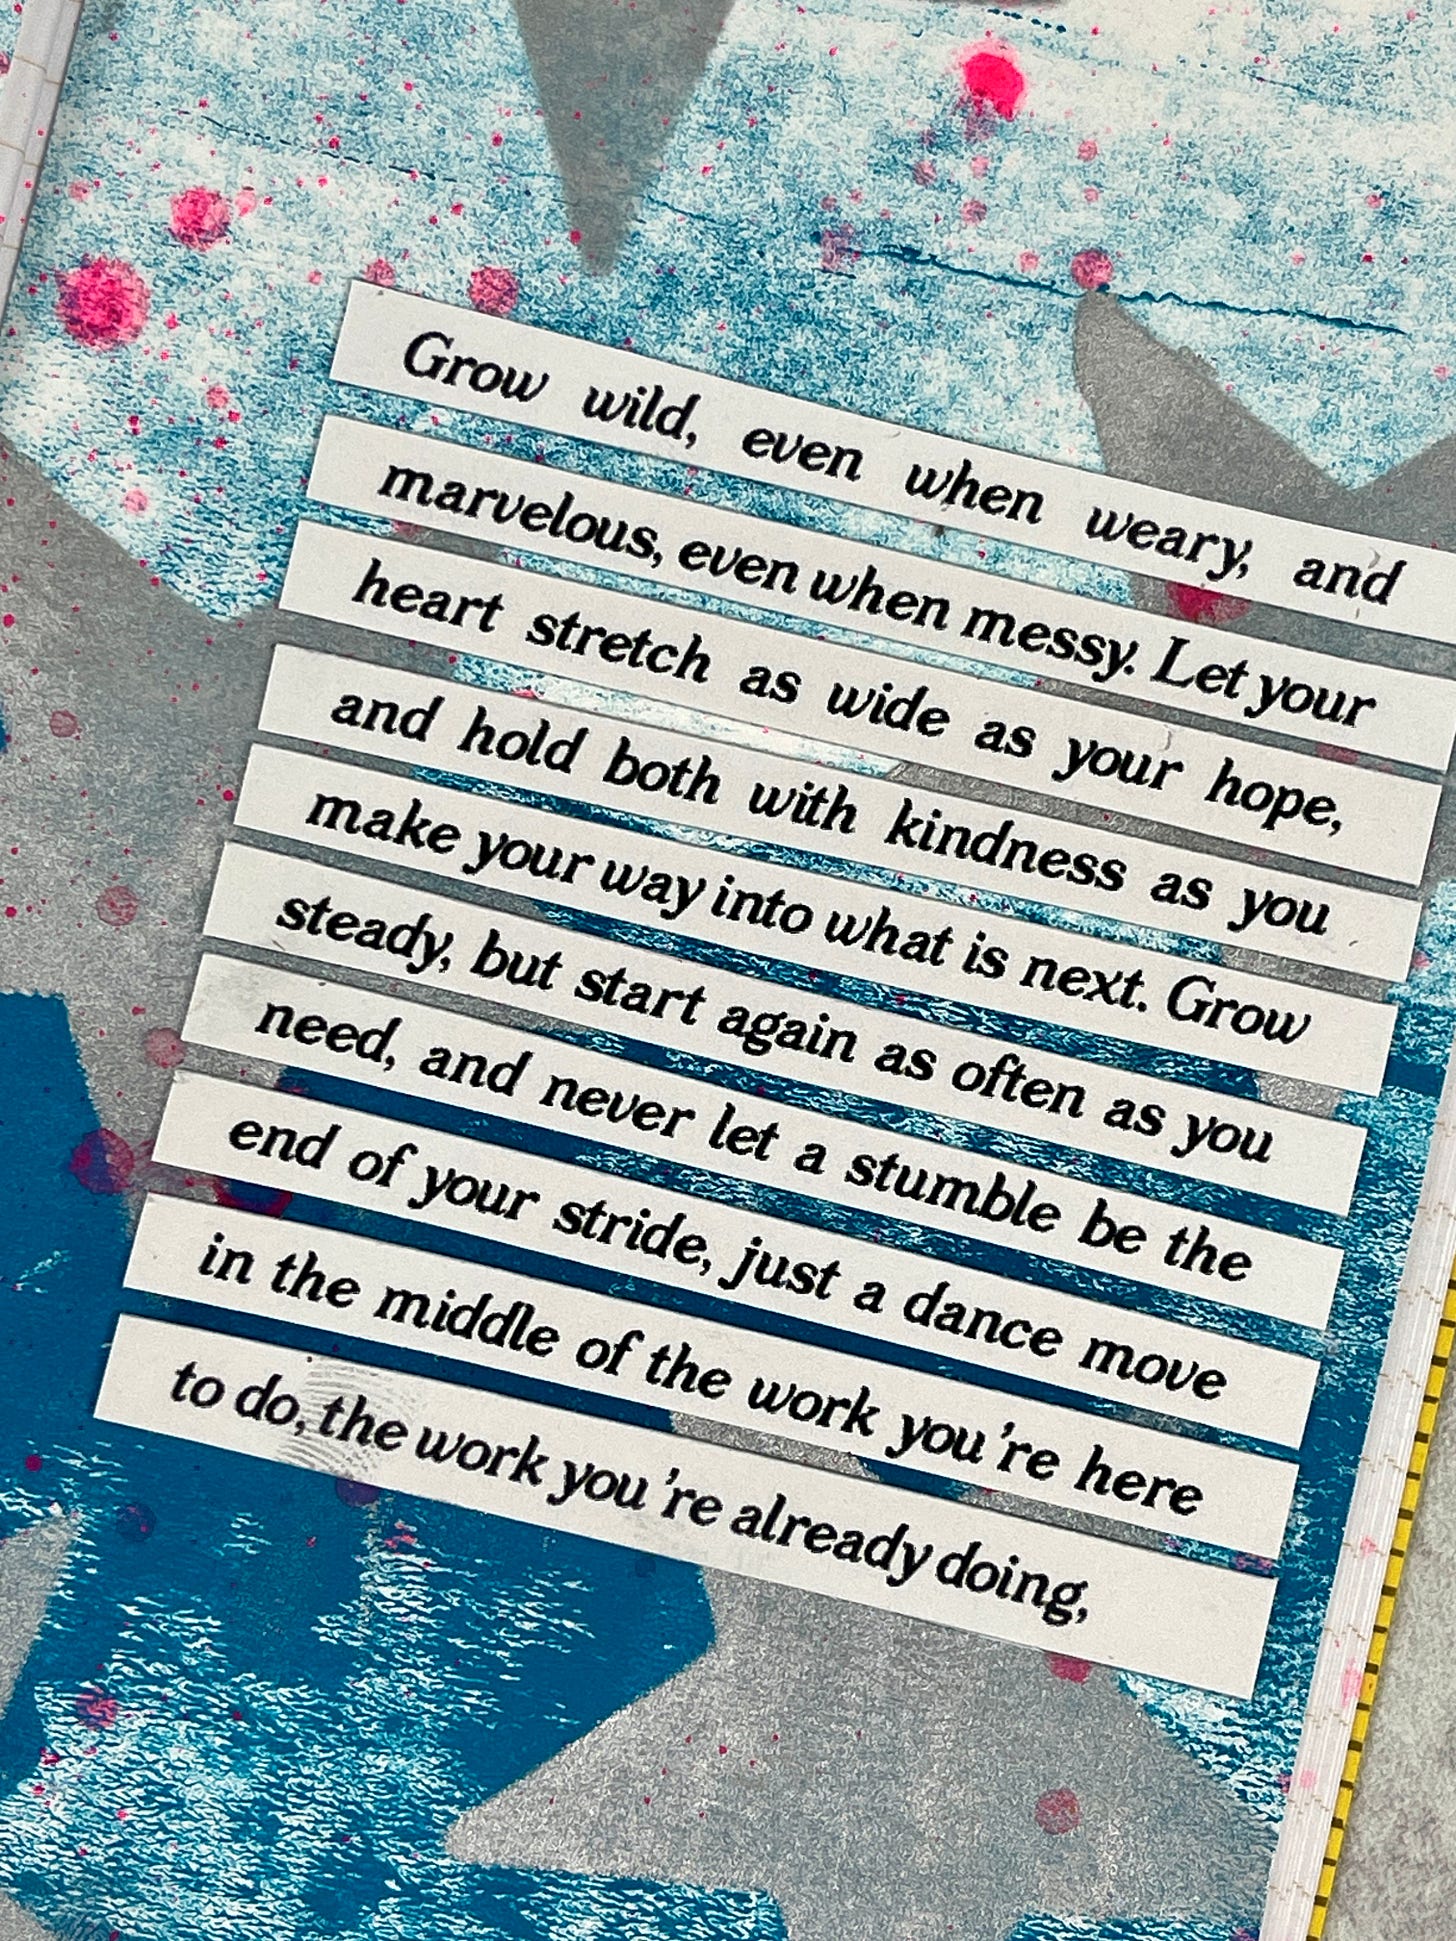 Grow wild, even when weary, and
marvelous, even when messy. Let your
heart stretch as wide as your hope,
and hold both with kindness as you
make your way into what is next. Grow
steady, but start again as often as you
need, and never let a stumble be the
end of your stride, just a dance move
in the middle of the work you're here
to do, the work you're already doing,